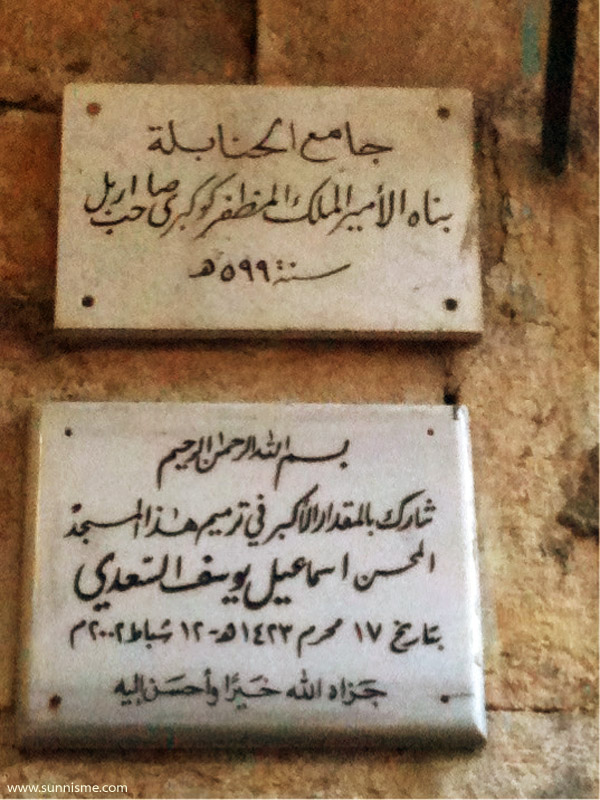 جامع الحنابلة
بناه الأمير الملك المظفر كوكبري صاحب اربل
سنة ٥٩٩ هـ
بسم الله الرحمن الرحيم
شارك بالمقدار الأكبر في ترميم هذا المسجد
المحسن اسماعيل يوسف السعدي
بتاريخ ١٧ محرم ١٤٢٣هـ - ١٢ شباط ٢٠٠٢م
جَزاه الله خَيرًا وأحسَن إليه
www.sunnisme.com